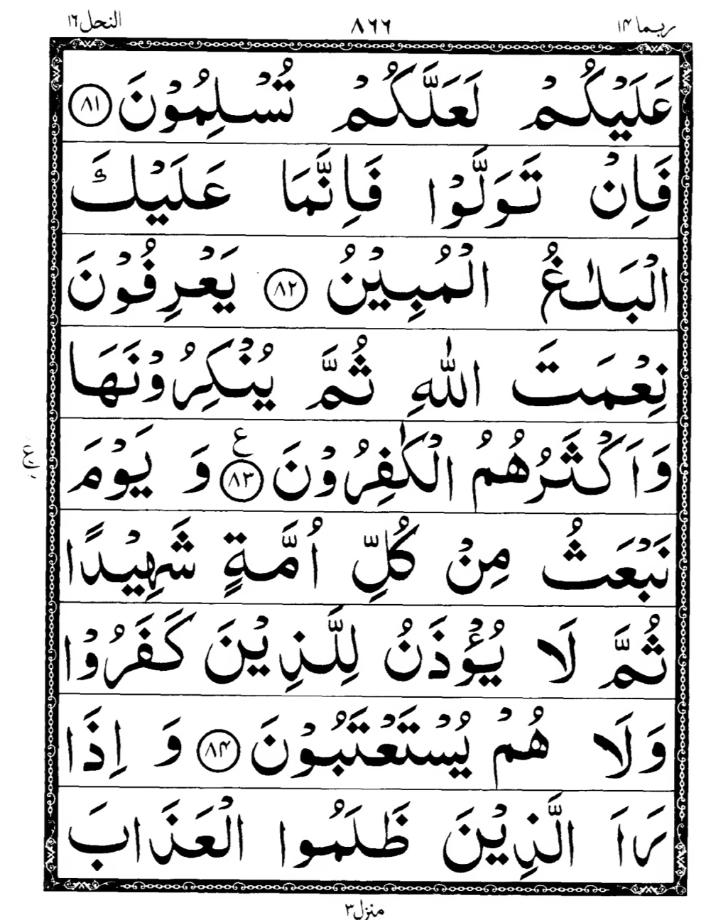 النحل ١٦ ٨٦٦ ربما ١٤
عَلَيْكُمْ لَعَلَّكُمْ تُسْلِمُوْنَ ﴿٨١﴾
فَاِنْ تَوَلَّوْا فَاِنَّمَا عَلَيْكَ
الْبَلٰغُ الْمُبِيْنُ ﴿٨٢﴾ يَعْرِفُوْنَ
نِعْمَتَ اللّٰهِ ثُمَّ يُنْكِرُوْنَهَا
وَاَكْثَرُهُمُ الْكٰفِرُوْنَ ﴿٨٣﴾ ع وَ يَوْمَ
نَبْعَثُ مِنْ كُلِّ اُمَّةٍ شَهِيْدًا
ثُمَّ لَا يُؤْذَنُ لِلَّذِيْنَ كَفَرُوْا
وَلَا هُمْ يُسْتَعْتَبُوْنَ ﴿٨٤﴾ وَ اِذَا
رَاَ الَّذِيْنَ ظَلَمُوا الْعَذَابَ
منزل ٣